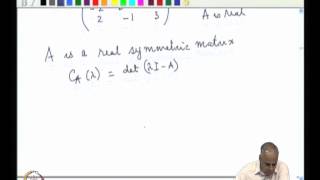 2 -1 3 A is real
A is a real symmetric matrix
C_A (λ) = det (λI - A)